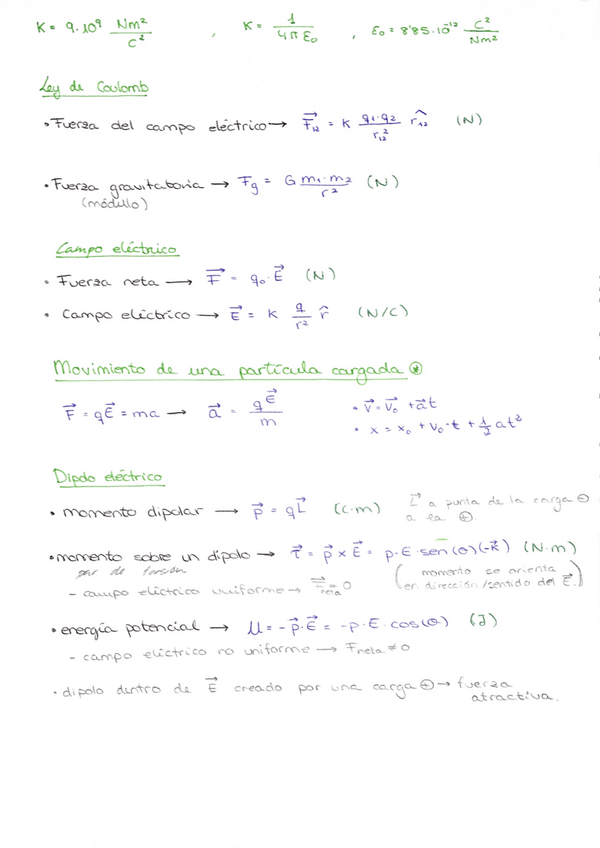 K = 9·10⁹ Nm²/C² , K = 1/4πε₀ , ε₀ = 8'85·10⁻¹² C²/Nm²
Ley de Coulomb
• Fuerza del campo eléctrico → F⃗₁₂ = K q₁·q₂/r₁₂² r̂₁₂ (N)
• Fuerza gravitatoria → Fg = G m₁·m₂/r² (N)
(módulo)
Campo eléctrico
• Fuerza neta → F⃗ = q₀·E⃗ (N)
• Campo eléctrico → E⃗ = K q/r² r̂ (N/C)
Movimiento de una partícula cargada ⊛
F⃗ = qE⃗ = ma → a⃗ = qE⃗/m
• v⃗ = v⃗₀ + a⃗t
• x = x₀ + v₀·t + ½ at²
Dipolo eléctrico
• momento dipolar → p⃗ = qL⃗ (C·m) L⃗ a punta de la carga ⊖
a la ⊕.
• momento sobre un dipolo → τ⃗ = p⃗ x E⃗ = p·E·sen(θ)(-k⃗) (N·m)
par de torsión
(momento se orienta
en dirección/sentido del E⃗.)
- campo eléctrico uniforme → F⃗neta = 0
• energía potencial → U = -p⃗·E⃗ = -p·E·cos(θ) (J)
- campo eléctrico no uniforme → Fneta ≠ 0
• dipolo dentro de E⃗ creado por una carga ⊕ → fuerza
atractiva.